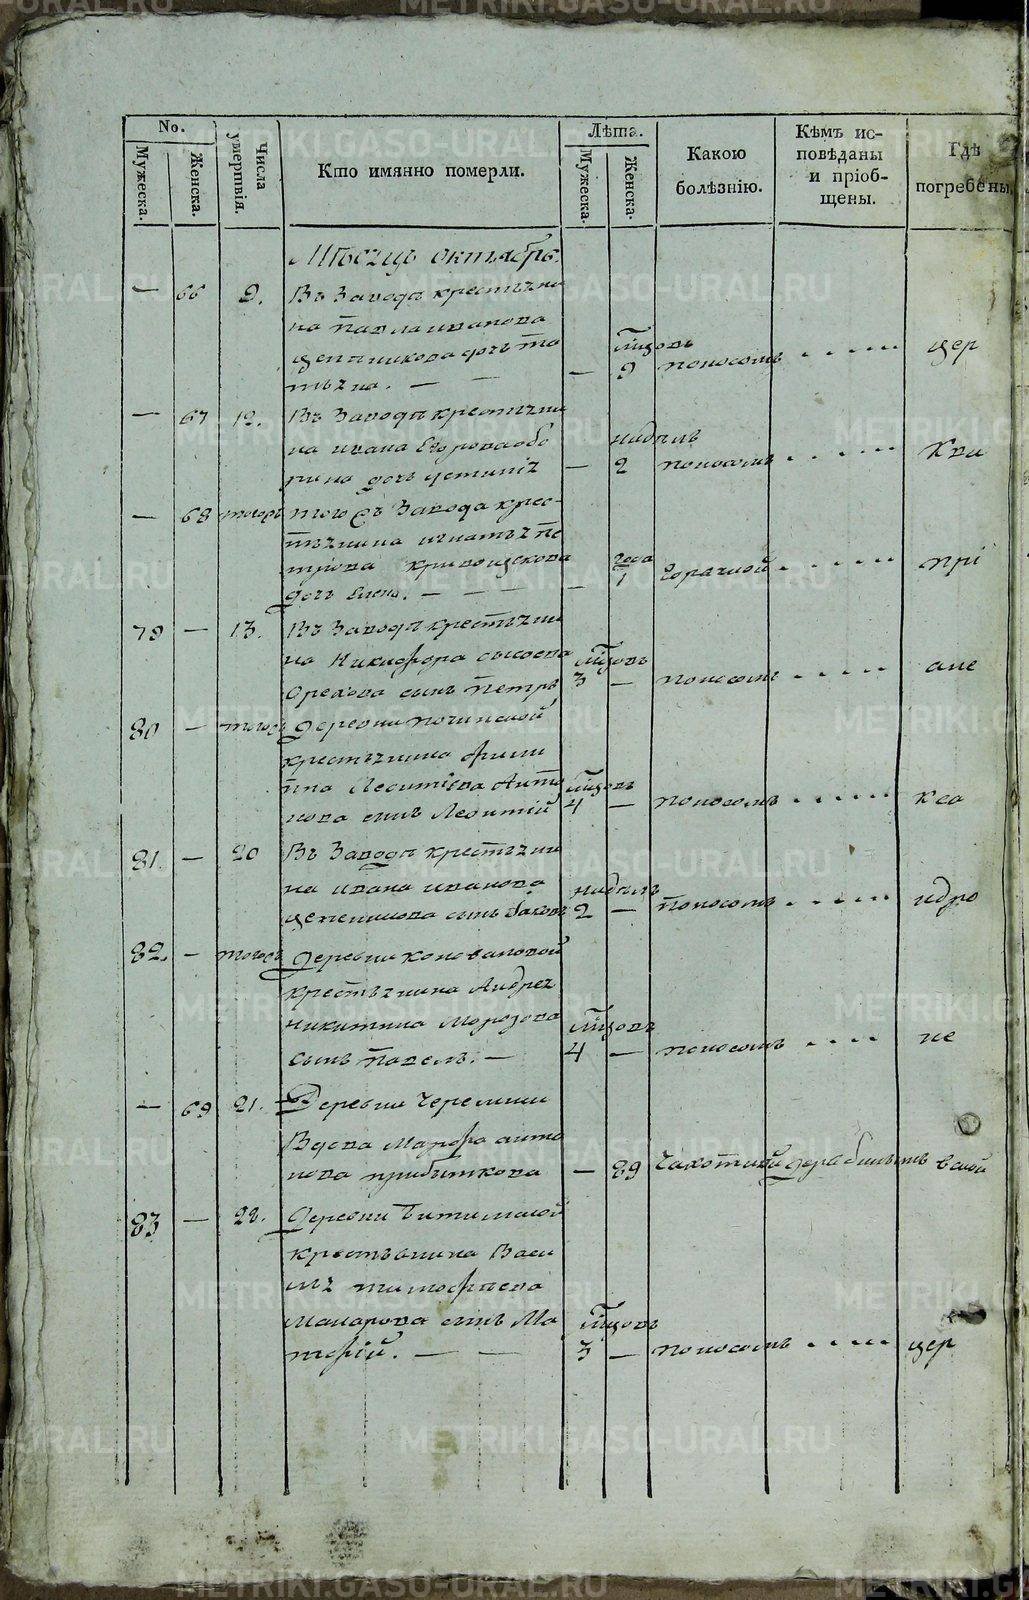 METRIKI.GASO-URAL.RU
No.
Мужеска.
Женска.
Числа умертвія.
Кто имянно померли.
Лѣта.
Мужеска.
Женска.
Какою болѣзнію.
Кѣмъ исповѣданы и пріобщены.
Гдѣ погребены
Мѣсяцъ октябрь.
— 66 9. Въ Заводѣ крестьяни
на Павла иванова
дочь та
тьяна. — — — мцовъ 9 поносомъ ..... цер
— 67 12. Въ Заводѣ крестьяни
на ивана Егорова обо
рина дочь устиния — нидѣль 2 поносомъ ..... кви
— 68 тогожъ того жъ Завода крес-
тьянина игнатья пе
трова кривощекова
дочь елена. — — — — года 1 горячкой ..... при
79 — 13. Въ Заводѣ крестьяни
на Никифора сысоева
Орехова сынъ петръ мцовъ 3 — поносомъ ..... 
80 — тогожъ деревни починской
крестьянина фили
ппа Леонтіева Анто
нова сынъ Леонтій мцовъ 4 — поносомъ ..... кса
81. — 20 Въ Заводѣ крестьяни
на ивана иванова
сынъ Iаковъ нидѣль 2 — поносомъ ..... ндро
82. — тогожъ деревни коноваловой
крестьянина Андрея
никитина Морозова
сынъ павелъ. — мцовъ 4 — поносомъ .... не
— 69 21. Деревни Черемши
Вдова Марфа анто
нова прибыткова — 89 Чахоткой
83 — 22. деревни Битимской
крестьянина Васи
лья тимофѣева
Макарова сынъ Ма
тфій. — — мцовъ 3 — поносомъ ..... цер